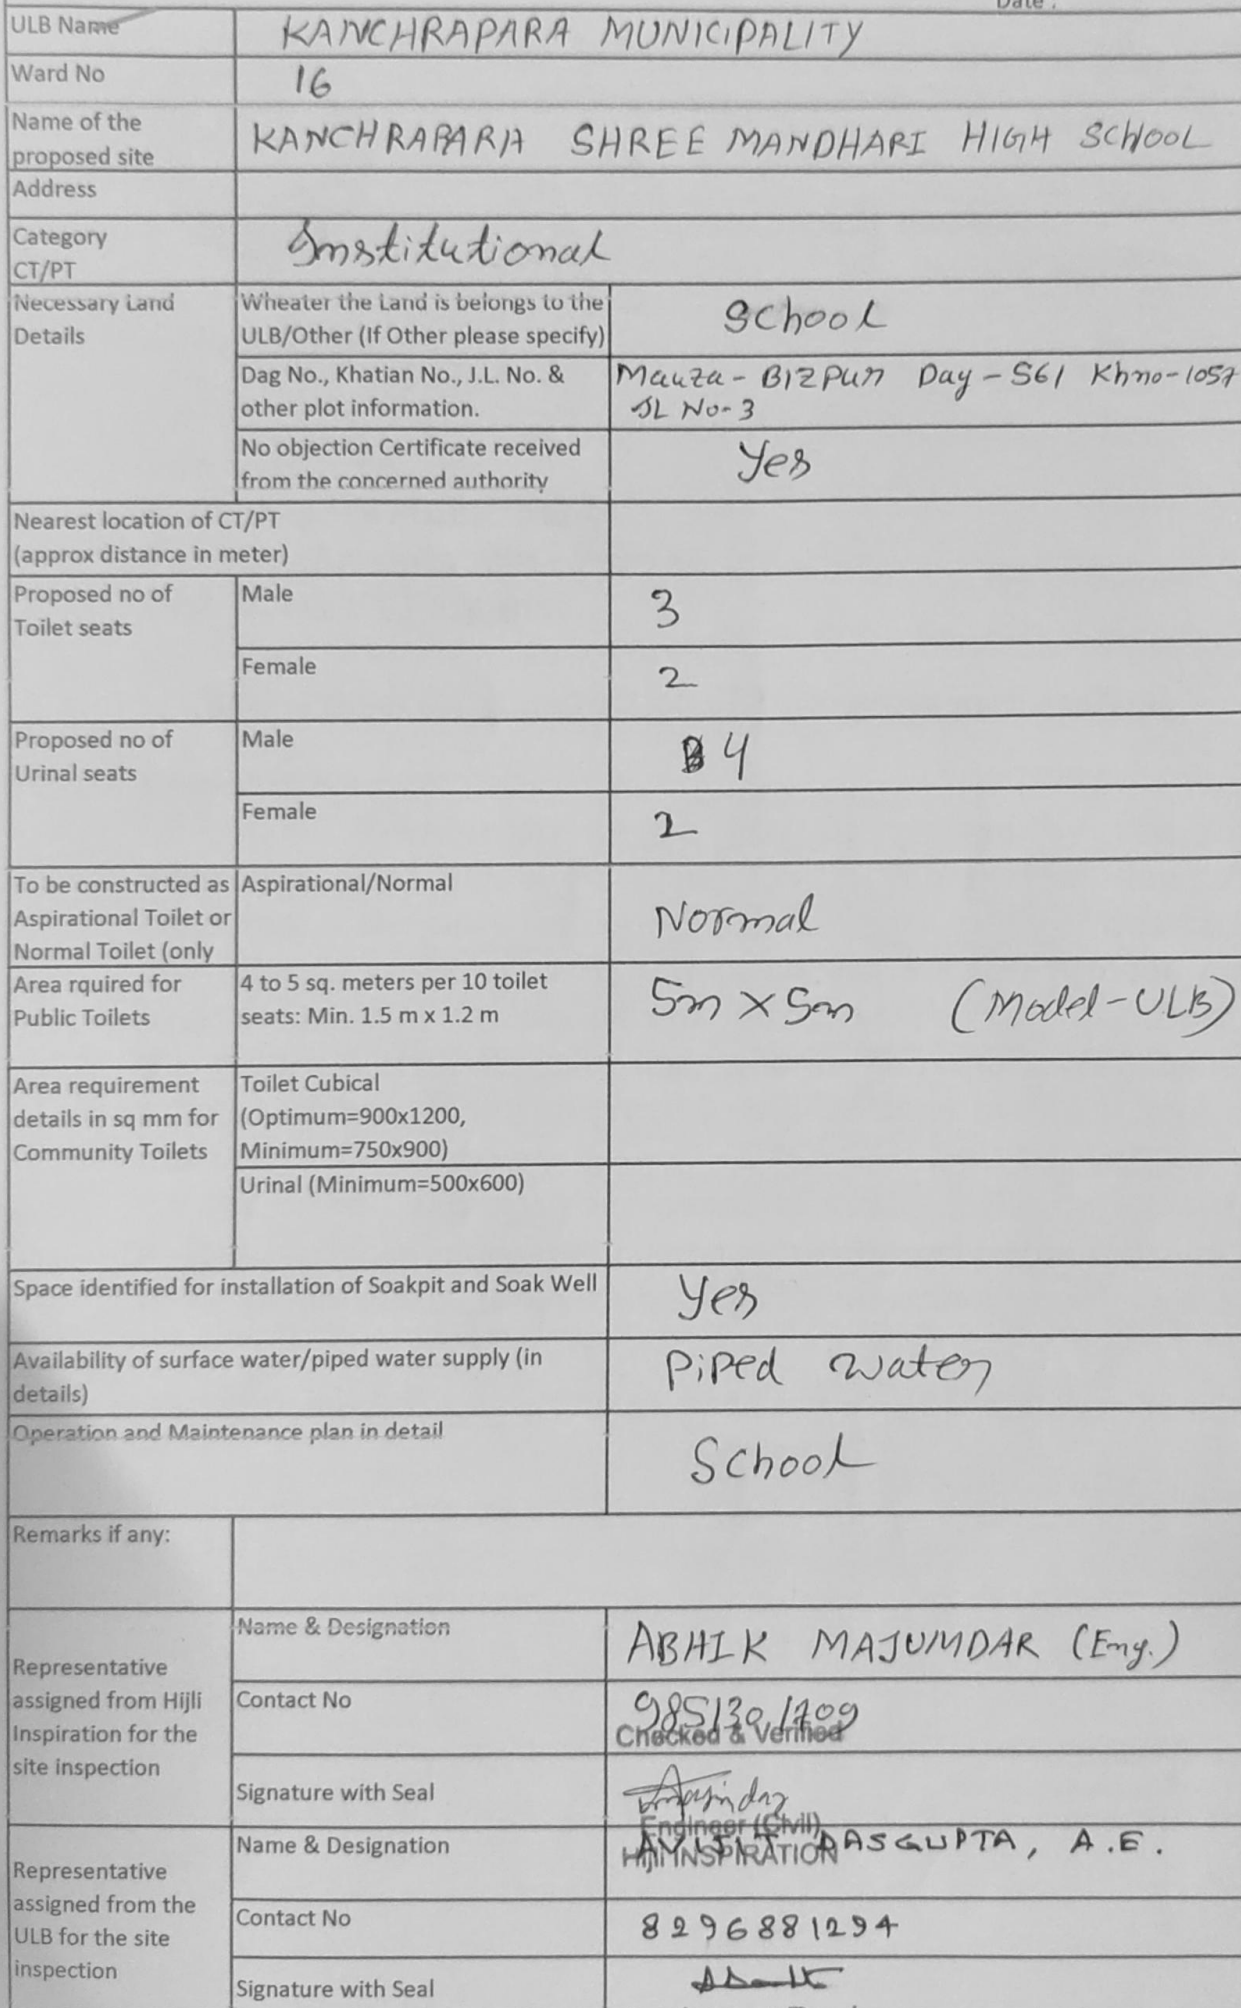 Date :
ULB Name KANCHRAPARA MUNICIPALITY
Ward No 16
Name of the
proposed site KANCHRAPARA SHREE MANDHARI HIGH SCHOOL
Address
Category
CT/PT Institutional
Necessary Land
Details
Wheater the Land is belongs to the
ULB/Other (If Other please specify)
School
Dag No., Khatian No., J.L. No. &
other plot information.
Mauza - BIZPUR Day - 561 Kh no - 1057
JL No - 3
No objection Certificate received
from the concerned authority
Yes
Nearest location of CT/PT
(approx distance in meter)
Proposed no of
Toilet seats
Male 3
Female 2
Proposed no of
Urinal seats
Male 4
Female 2
To be constructed as
Aspirational Toilet or
Normal Toilet (only
Aspirational/Normal
Normal
Area rquired for
Public Toilets
4 to 5 sq. meters per 10 toilet
seats: Min. 1.5 m x 1.2 m
5m x 5m (Model-ULB)
Area requirement
details in sq mm for
Community Toilets
Toilet Cubical
(Optimum=900x1200,
Minimum=750x900)
Urinal (Minimum=500x600)
Space identified for installation of Soakpit and Soak Well Yes
Availability of surface water/piped water supply (in
details)
Piped water
Operation and Maintenance plan in detail
School
Remarks if any:
Representative
assigned from Hijli
Inspiration for the
site inspection
Name & Designation ABHIK MAJUMDAR (Eng.)
Contact No 9851301709
Checked & Verified
Signature with Seal
Engineer (Civil)
Hijli INSPIRATION
Representative
assigned from the
ULB for the site
inspection
Name & Designation DASGUPTA, A.E.
Contact No 8296881294
Signature with Seal